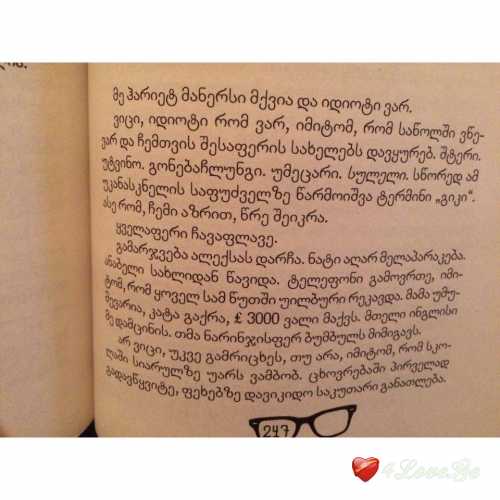 მე ჰარიეტ მანერსი მქვია და იდიოტი ვარ.
ვიცი, იდიოტი რომ ვარ, იმიტომ, რომ საწოლში ვწე-
ვარ და ჩემთვის შესაფერის სახელებს დავყურებ. შტერი.
უტვინო. გონებაჩლუნგი. უმეცარი. სულელი. სწორედ ამ
უკანასკნელის საფუძველზე წარმოიშვა ტერმინი „გიკი“.
ასე რომ, ჩემი აზრით, წრე შეიკრა.
ყველაფერი ჩავაფლავე.
გამარჯვება ალექსას დარჩა. ნატი აღარ მელაპარაკება.
ანაბელი სახლიდან წავიდა. ტელეფონი გამოვრთე, იმი-
ტომ, რომ ყოველ სამ წუთში უილბური რეკავდა. მამა უმუ-
შევარია, კატა გაქრა, £ 3000 ვალი მაქვს. მთელი ინგლისი
მე დამცინის. თმა ნარინჯისფერ ბუმბულს მიმიგავს.
არ ვიცი, უკვე გამრიცხეს, თუ არა, იმიტომ, რომ სკო-
ლაში სიარულზე უარს ვამბობ. ცხოვრებაში პირველად
გადავწყვიტე, ფეხებზე დავიკიდო საკუთარი განათლება.
247
4Love.Ge